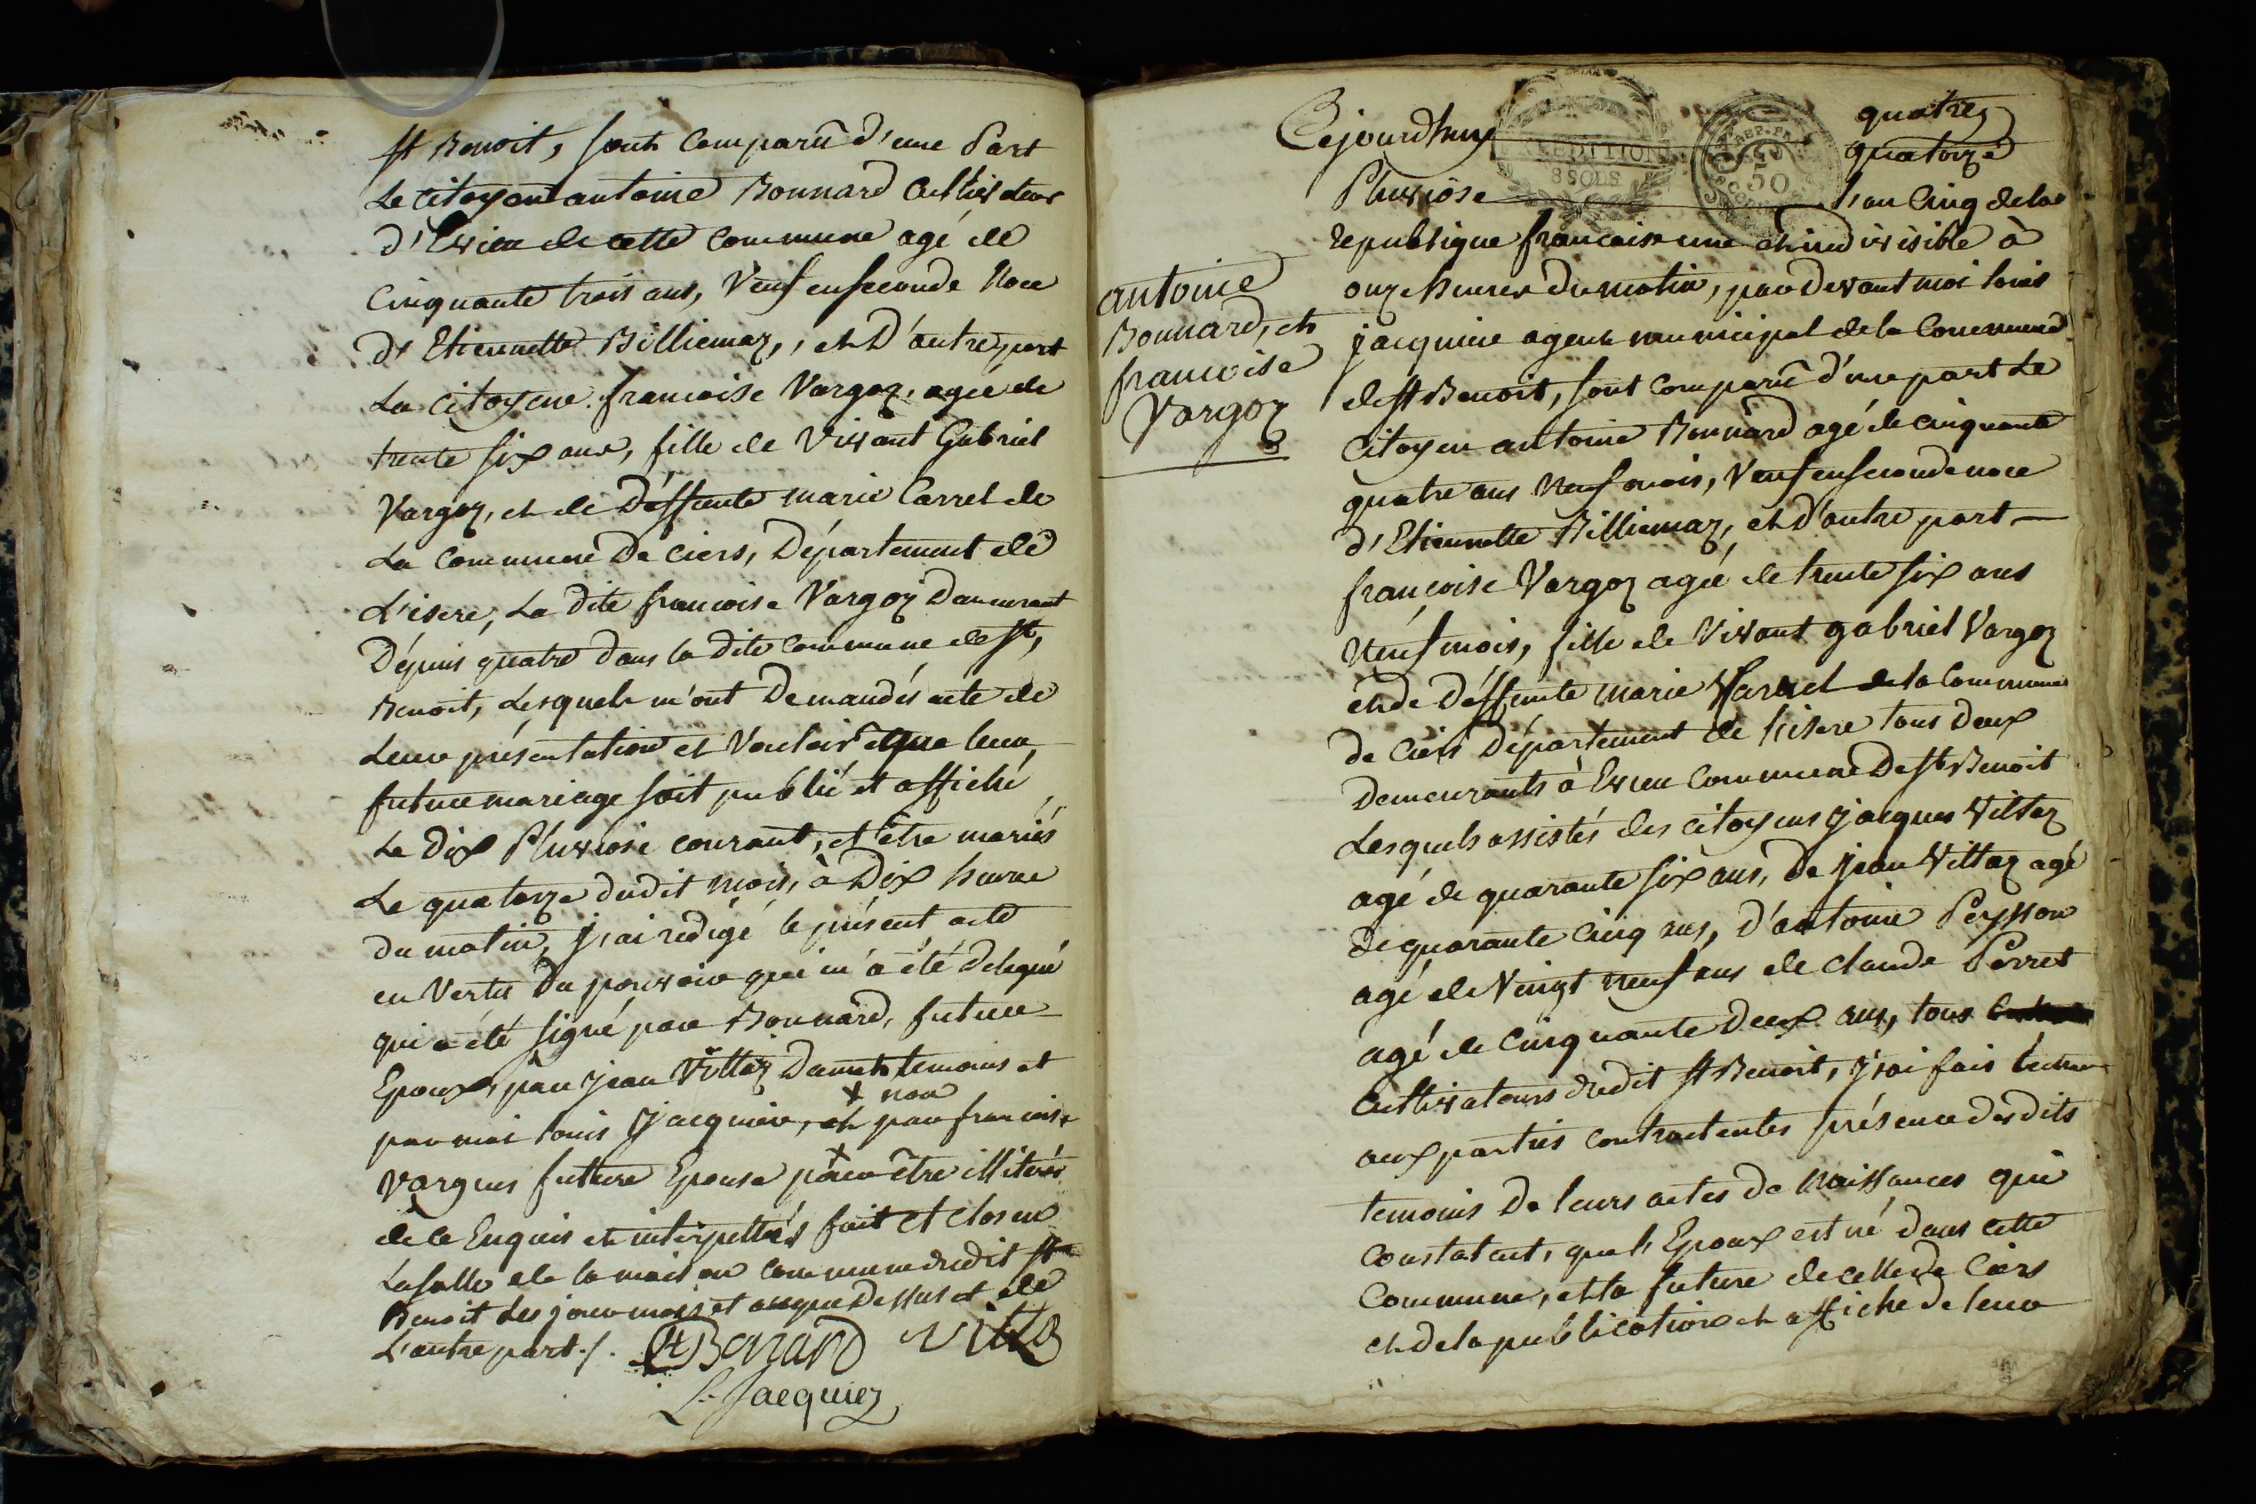 st Benoit, sont Comparû d'une Part
Le citoyent antoine Bonnard Cultivateur
d'Evieu de cette Commune agé de
Cinquante trois ans, Veuf en seconde Noce
d'Etiennette Billiemaz, et D'autre part
La citoyene francoise Vargoz, agée de
trente six ans, fille de Vivant Gabriel
Vargoz, et de Déffunte marie Carret de
La Commune De Ciers, Département de
L'isere, La dite francoise Vargoz Demeurant
Dépuis quatre dans la dite Commune de st,
Benoit, Lesquels m'ont Demandés acte de
Leur présentation et Vouloir que leur
future mariage soit publié et affiché
Le Dix Pluviose courant, et être mariés
Le quatorze dudit mois, à Dix heures
du matin, j'ai redigé le présent acte
en Vertu Du pouvoir qui m'a été delegué
qui a été signé par Bonnard, future
Epoux, par jean Vittoz temoins et
par moi louis Jacquier, et non par francoise
Vargues future Epouse pour être illiterés
de ce Enquis et interpellés fait et clos en
La salle de la maison Commune dudit st
Benoit Les jour mois et an que Dessus et de
L'autre part ./.
Bonard Vitto
L. Jacquier
Cejourdhuy quatorze
quatre
Pluviose l'an Cinq de la
republique francaise une et indivisible à
onze heures du matin, par devant moi louis
jacquier agent municipal de la Commune
de st Benoit, sont Comparû d'une part Le
Citoyen antoine Bonnard agé de cinquante
quatre ans neuf mois, Veuf en seconde noce
d'Etiennette Billiemaz, et d'autre part
françoise Vargoz agée de trente six ans
Neuf mois, fille de Vivant gabriel Vargoz
et de Déffunte marie de la Commune
de Ciers Département de lisere tous Deux
Demeurants à Evieu Commune De st Benoit
Lesquels assistés des citoyens jacques Vittoz
agé de quarante six ans, De jean Vittoz agé
de quarante cinq ans, D'antoine Peysson
agé de Vingt neuf ans de claude Perret
agé de Cinquante Deux ans, tous
Cultivateurs dudit st Benoit, j'ai fais lecture
aux parties contractentes présence desdits
temoins De leurs actes de Naissances qui
Constatent, que l'Epoux est né dans cette
Commune, et la future de celle de Ciers
et de la publication et affiche de leur
antoine
Bonnard, et
francoise
Vargoz
8 SOLS
50